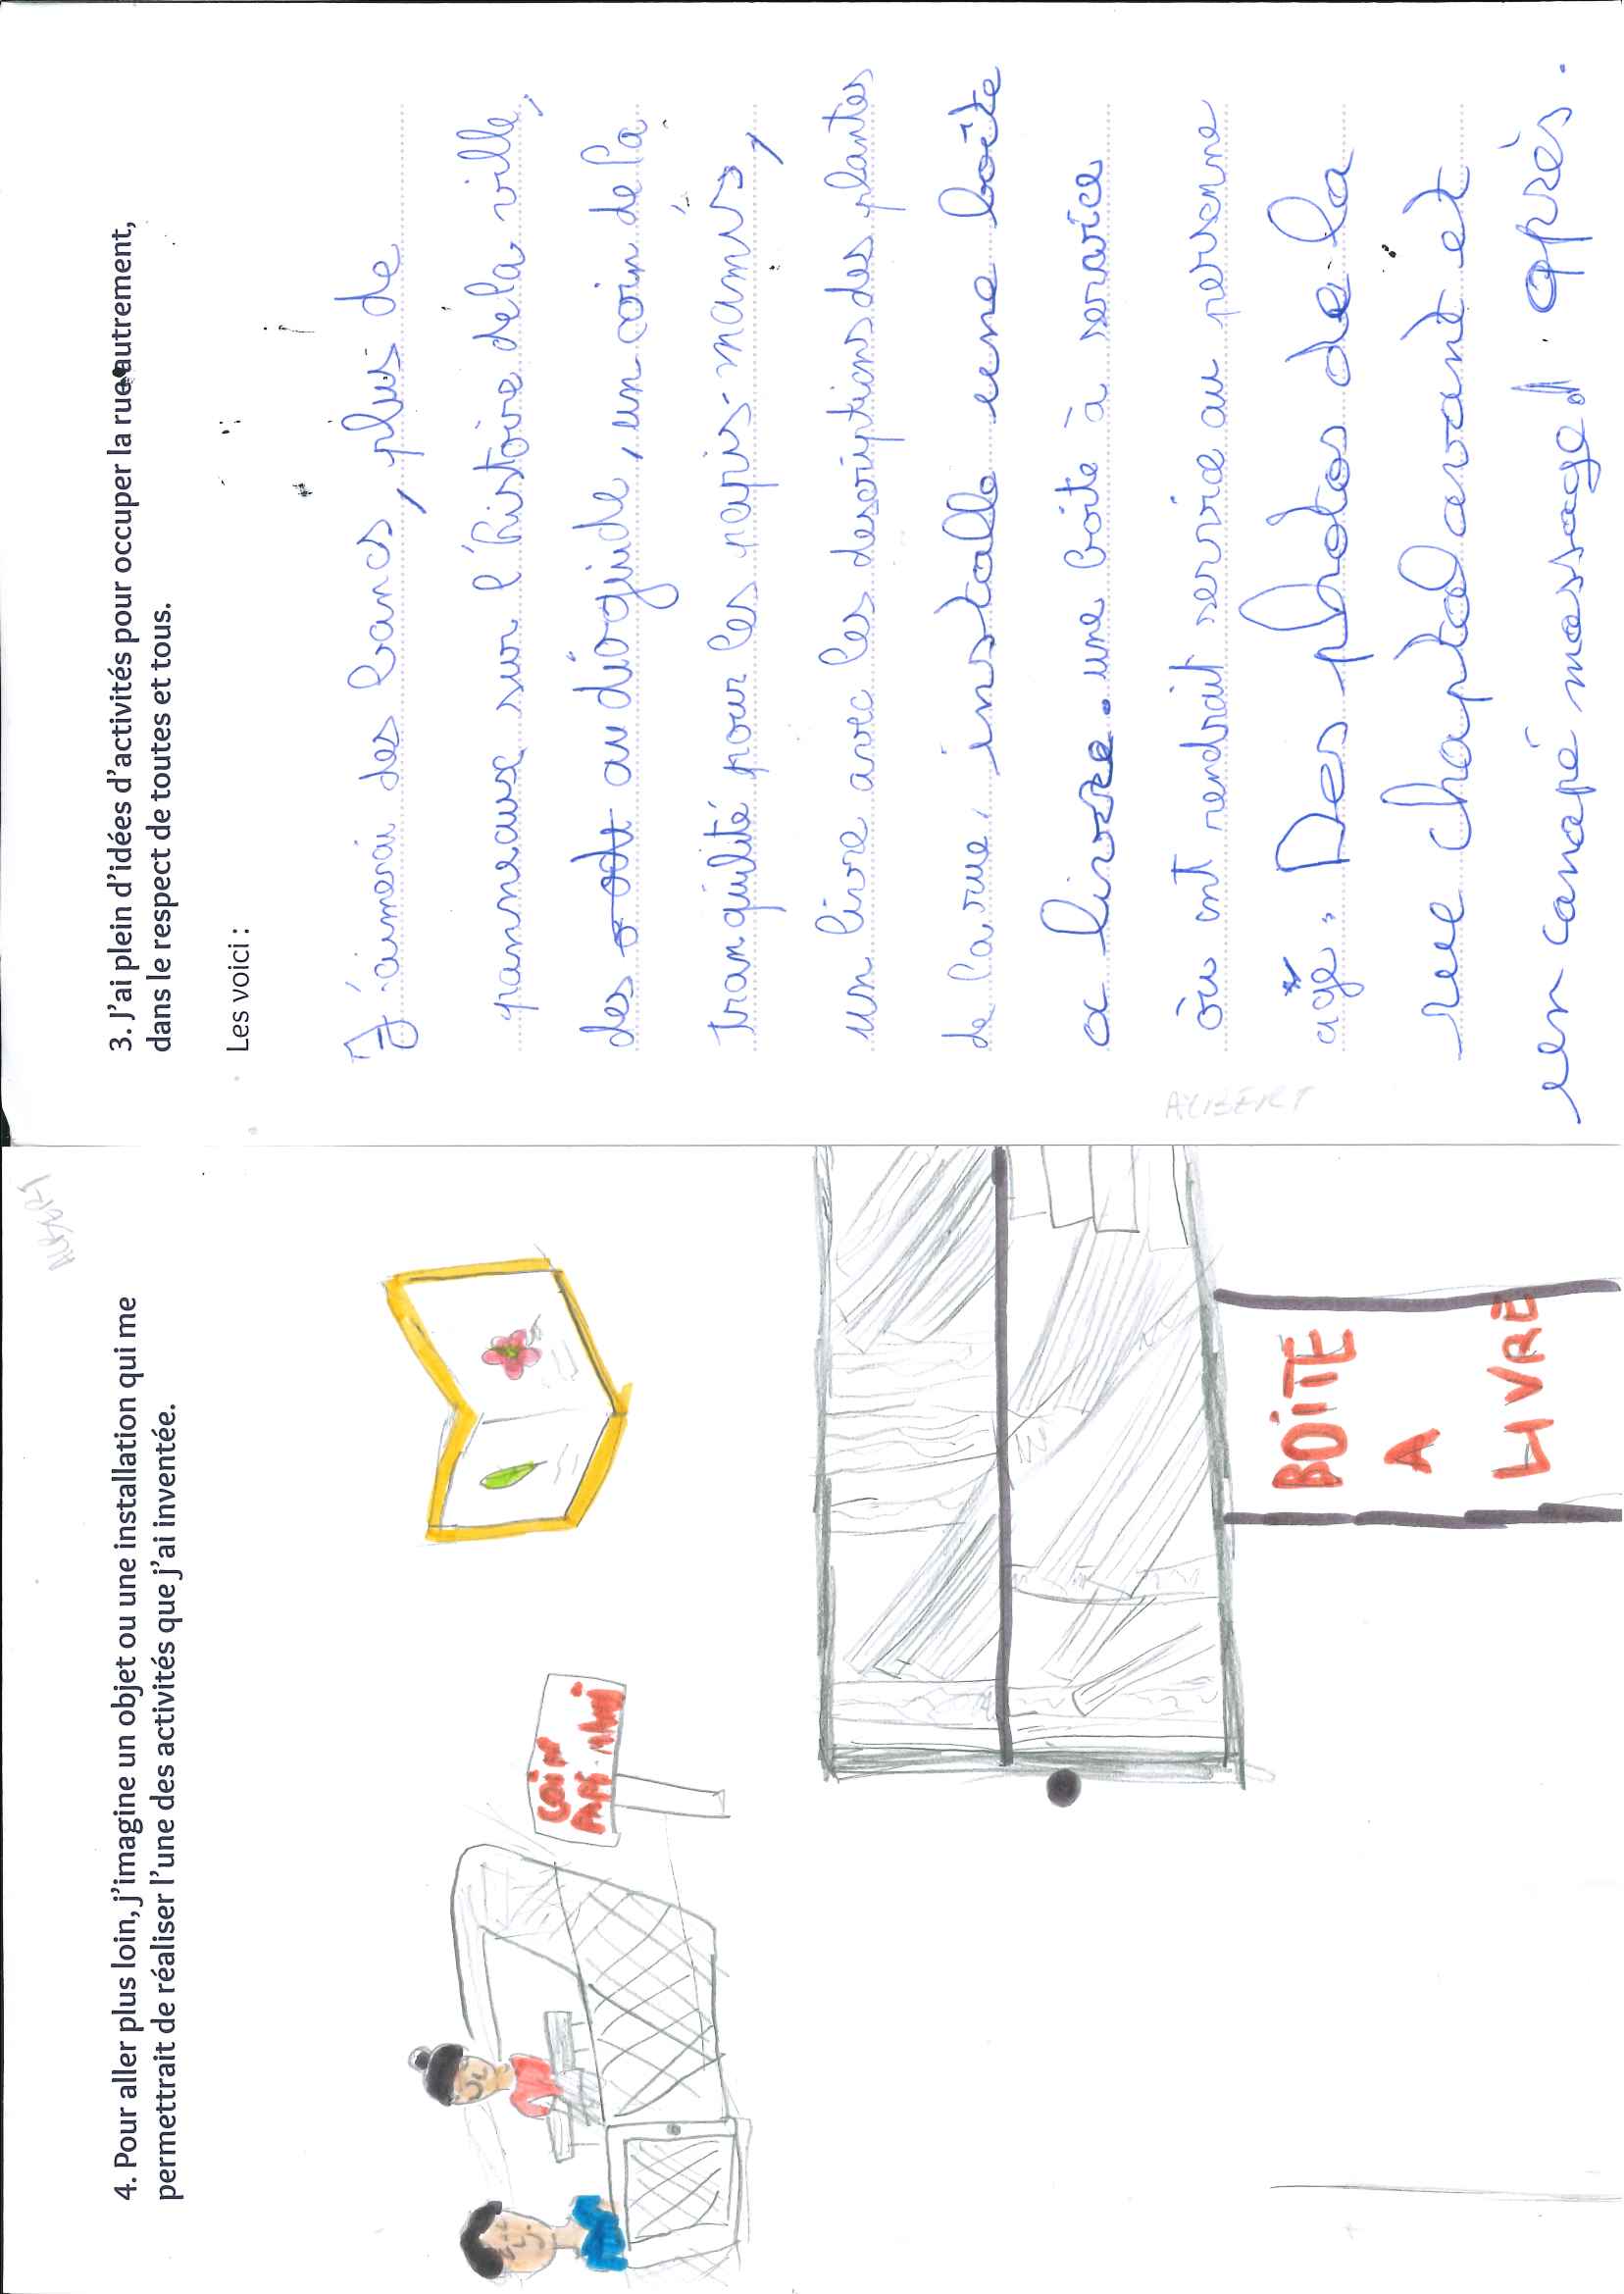 4. Pour aller plus loin, j'imagine un objet ou une installation qui me
permettrait de réaliser l'une des activités que j'ai inventée.
COIN
PAPI-MAMI
BOITE
A
LIVRE
3. J'ai plein d'idées d'activités pour occuper la rue autrement,
dans le respect de toutes et tous.
Les voici :
J'aimerai des bancs, plus de
panneaux sur l'histoire de la ville,
des au dioguide, un coin de la
tranquilité pour les papis-mamis,
un livre avec les descriptions des plantes
de la rue. installe une boîte
a livre. une boite à service
où ont rendrait service au personne
agé. Des photos de la
rue chaptal avant et
après.
un canapé massage!
ALIBERT